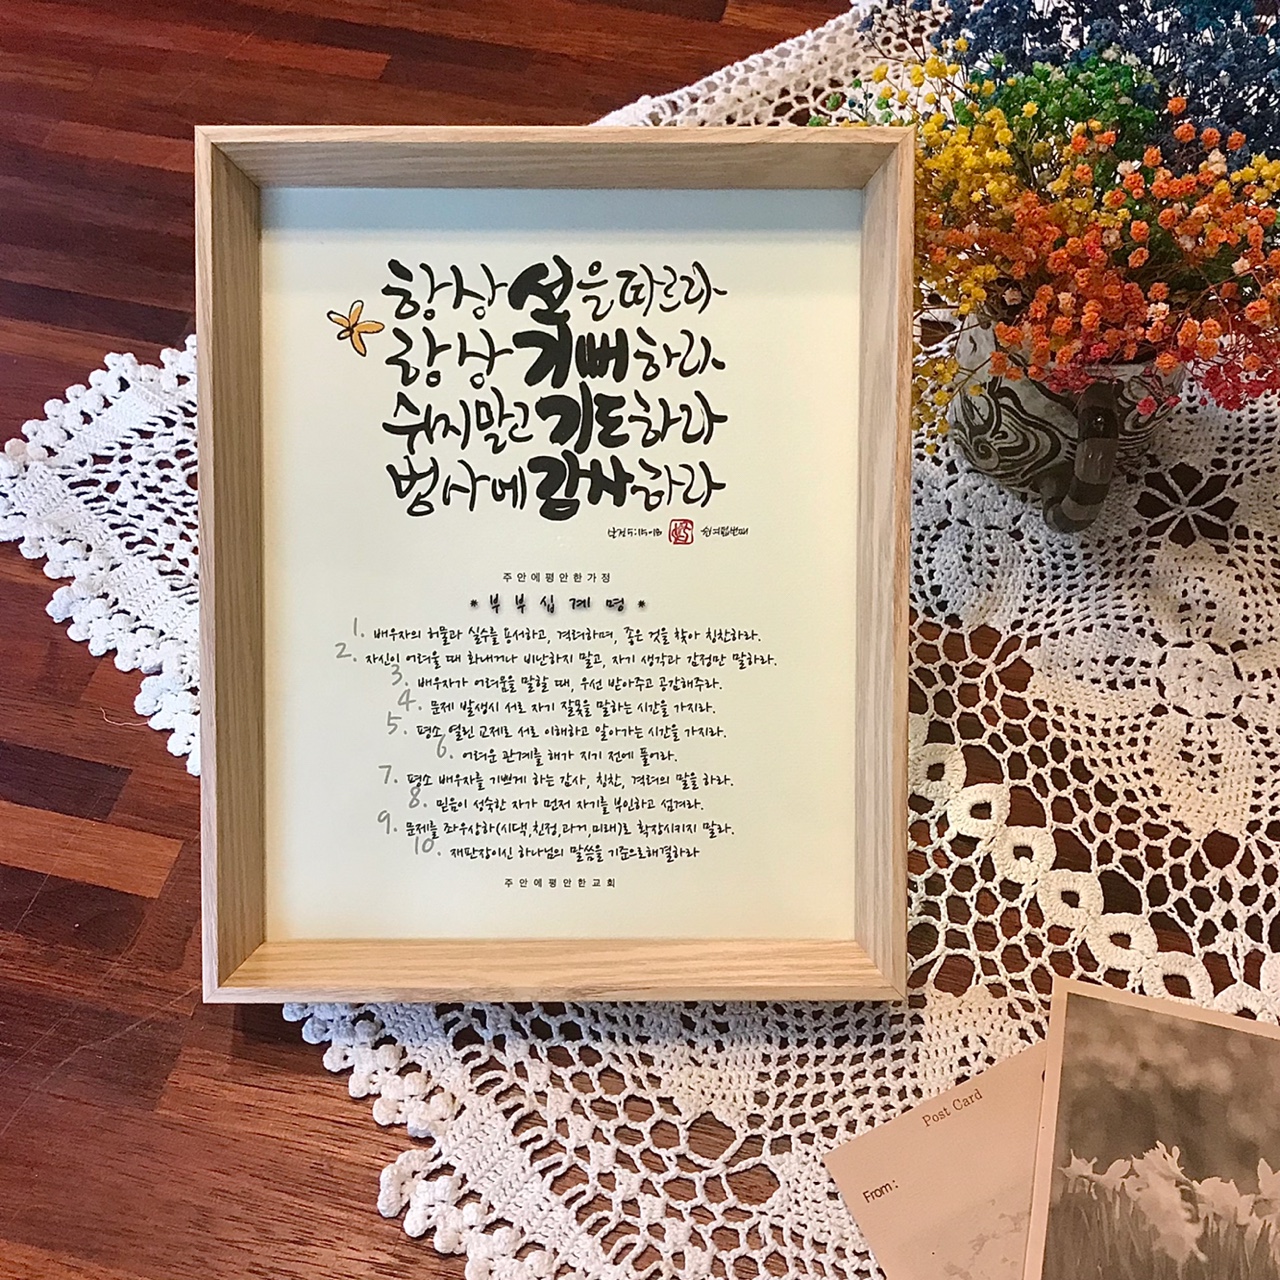 항상 선을 따르라
항상 기뻐하라
쉬지말고 기도하라
범사에 감사하라
살전5:15-18
주안에평안한가정
* 부부십계명 *
1. 배우자의 허물과 실수를 용서하고, 격려하며, 좋은 것을 찾아 칭찬하라.
2. 자신이 어려울 때 화내거나 비난하지 말고, 자기 생각과 감정만 말하라.
3. 배우자가 어려움을 말할 때, 우선 받아주고 공감해주라.
4. 문제 발생시 서로 자기 잘못을 말하는 시간을 가지라.
5. 평소 열린 교제로 서로 이해하고 알아가는 시간을 가지라.
6. 어려운 관계를 해가 지기 전에 풀어라.
7. 평소 배우자를 기쁘게 하는 감사, 칭찬, 격려의 말을 하라.
8. 믿음이 성숙한 자가 먼저 자기를 부인하고 섬겨라.
9. 문제를 좌우상하(시댁,친정,과거,미래)로 확장시키지 말라.
10. 재판장이신 하나님의 말씀을 기준으로해결하라
주안에평안한교회
Post Card
From: